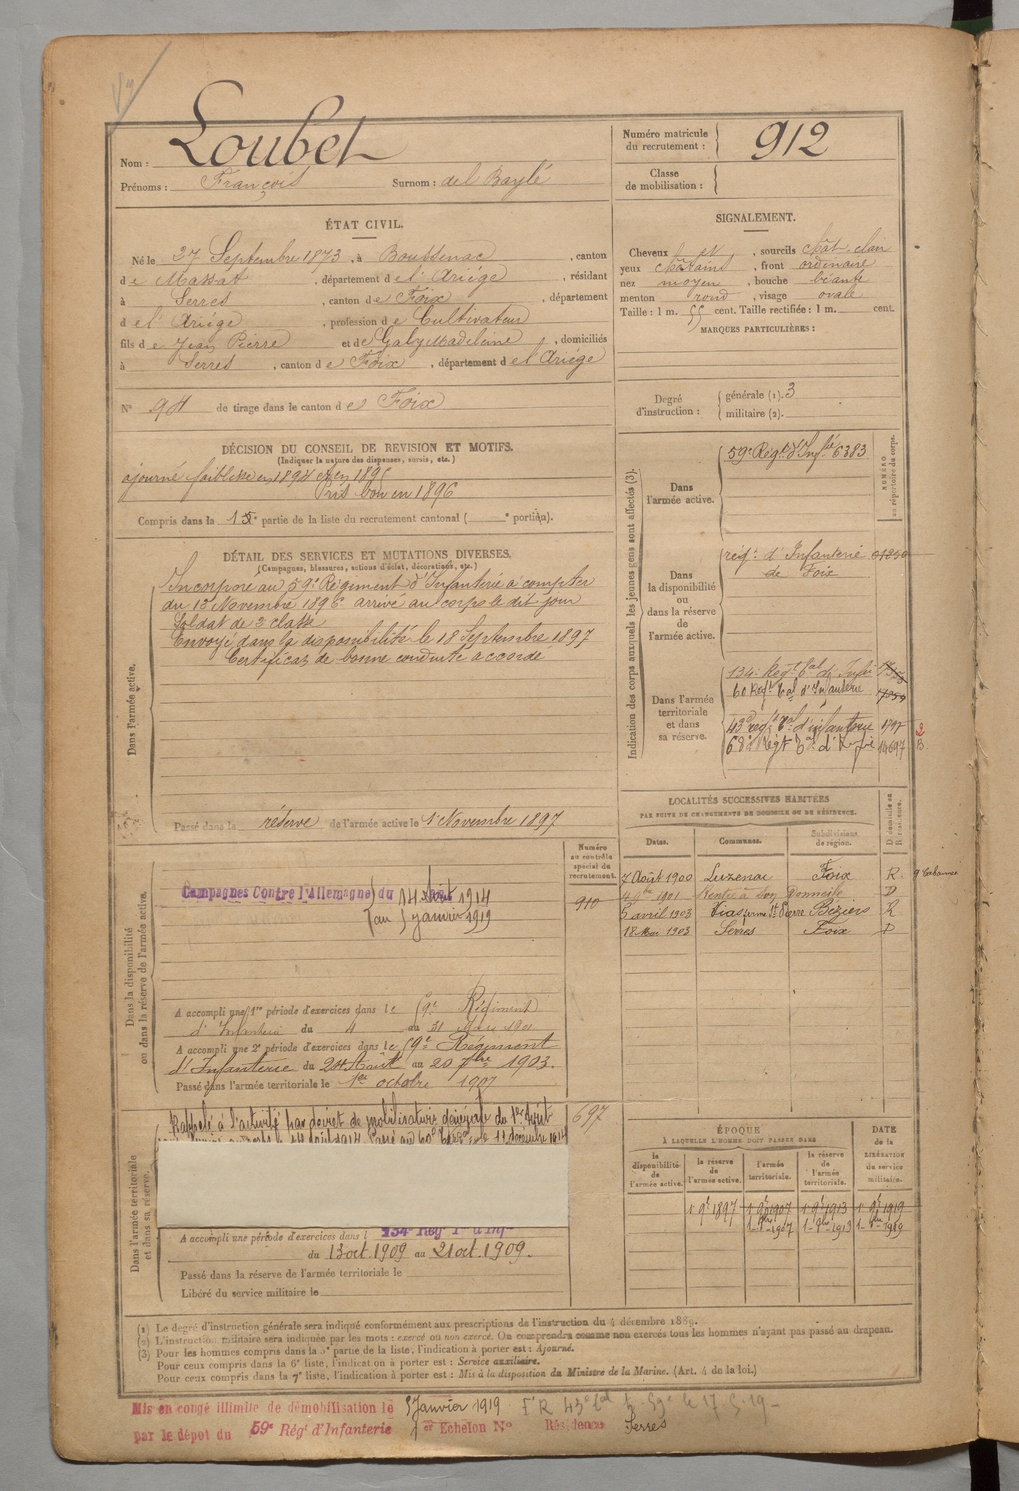 Nom : Loubet
Prénoms : François Surnom : del Baylé
Numéro matricule
du recrutement : 912
Classe
de mobilisation :
ÉTAT CIVIL.
Né le 27 Septembre 1873, à Boussenac, canton
de Massat, département de l'Ariége, résidant
à Serres, canton de Foix, département
d el' Ariége, profession de Cultivateur
fils de Jean Pierre et de Galy Madeleine, domiciliés
à Serres, canton de Foix, département de l'Ariége
N° 94 de tirage dans le canton de Foix
SIGNALEMENT.
Cheveux et, sourcils chât. clair
yeux châtains, front ordinaire
nez moyen, bouche béante
menton rond, visage ovale
Taille : 1 m. 55 cent. Taille rectifiée : 1 m. cent.
MARQUES PARTICULIÈRES :
Degré
d'instruction :
générale (1). 3
militaire (2).
DÉCISION DU CONSEIL DE REVISION ET MOTIFS.
(Indiquer la nature des dispenses, sursis, etc.)
ajourné faiblesse en 1894 et en 1895
Pris bon en 1896
Compris dans la 1e partie de la liste du recrutement cantonal ( e portion).
DÉTAIL DES SERVICES ET MUTATIONS DIVERSES.
(Campagnes, blessures, actions d'éclat, décorations, etc.)
Dans l'armée active.
Incorporé au 59e Régiment d'Infanterie à compter
du 12 Novembre 1896 arrivé au corps le dit jour
Soldat de 2e classe
Envoyé dans la disponibilité le 18 Septembre 1897
Certificat de bonne conduite accordé
Passé dans la réserve de l'armée active le 1er Novembre 1897
Indication des corps auxquels les jeunes gens sont affectés (3).
NUMÉRO
au répertoire du corps.
Dans
l'armée active.
59e Régt d'Infie 6383
Dans
la disponibilité
ou
dans la réserve de
l'armée active.
régt d'Infanterie
de Foix
Dans l'armée
territoriale
et dans
sa réserve.
134e Regt tal d'Infie
60 Regt tal d'Infanterie
43e régt tal d'infanterie 1797
68e Régt tal d'Infie 14697
2
B.
LOCALITÉS SUCCESSIVES HABITÉES
PAR SUITE DE CHANGEMENTS DE DOMICILE OU DE RÉSIDENCE.
Dates. Communes. Subdivisions de région. D. domicile ou R. résidence.
7 Août 1900 Luzenac Foix R. 9 Cabannes
1901 Rentré à son Domicile D
5 avril 1903 Vias ferme St Pierre Béziers R
18 Mai 1903 Serres Foix D
Dans la disponibilité
ou dans la réserve de l'armée active.
Numéro
au contrôle
spécial du
recrutement.
910
Campagnes Contre l'Allemagne du 14 août 1914
au 5 janvier 1919
A accompli une 1re période d'exercices dans le 59e Régiment
d'Infanterie du 4 au 31 Mars 1901
A accompli une 2e période d'exercices dans le 59e Régiment
d'Infanterie du 24 Août au 20 7bre 1903.
Passé dans l'armée territoriale le 1er octobre 1907
Dans l'armée territoriale
et dans sa réserve.
697
Rappelé à l'activité par décret de mobilisation générale du 1er Août
A accompli une période d'exercices dans l 134e Regt Tl d'Infie
du 13 oct. 1909 au 21 oct. 1909.
Passé dans la réserve de l'armée territoriale le
Libéré du service militaire le
ÉPOQUE
À LAQUELLE L'HOMME DOIT PASSER DANS
DATE
de la
LIBÉRATION
du service
militaire.
la
disponibilité
de
l'armée active.
la réserve
de
l'armée active.
l'armée
territoriale.
la réserve
de
l'armée
territoriale.
1 9bre 1897 1 9bre 1907 1 9bre 1913 1 9bre 1919
(1) Le degré d'instruction générale sera indiqué conformément aux prescriptions de l'instruction du 4 décembre 1889.
(2) L'instruction militaire sera indiquée par les mots : exercé ou non exercé. On comprendra comme non exercés tous les hommes n'ayant pas passé au drapeau.
(3) Pour les hommes compris dans la 5e partie de la liste, l'indication à porter est : Ajourné.
Pour ceux compris dans la 6e liste, l'indication à porter est : Service auxiliaire.
Pour ceux compris dans la 7e liste, l'indication à porter est : Mis à la disposition du Ministre de la Marine. (Art. 4 de la loi.)
Mis en congé illimité de démobilisation le 5 Janvier 1919
par le dépot du 59e Régt d'Infanterie 1er Echelon No Résidence Serres